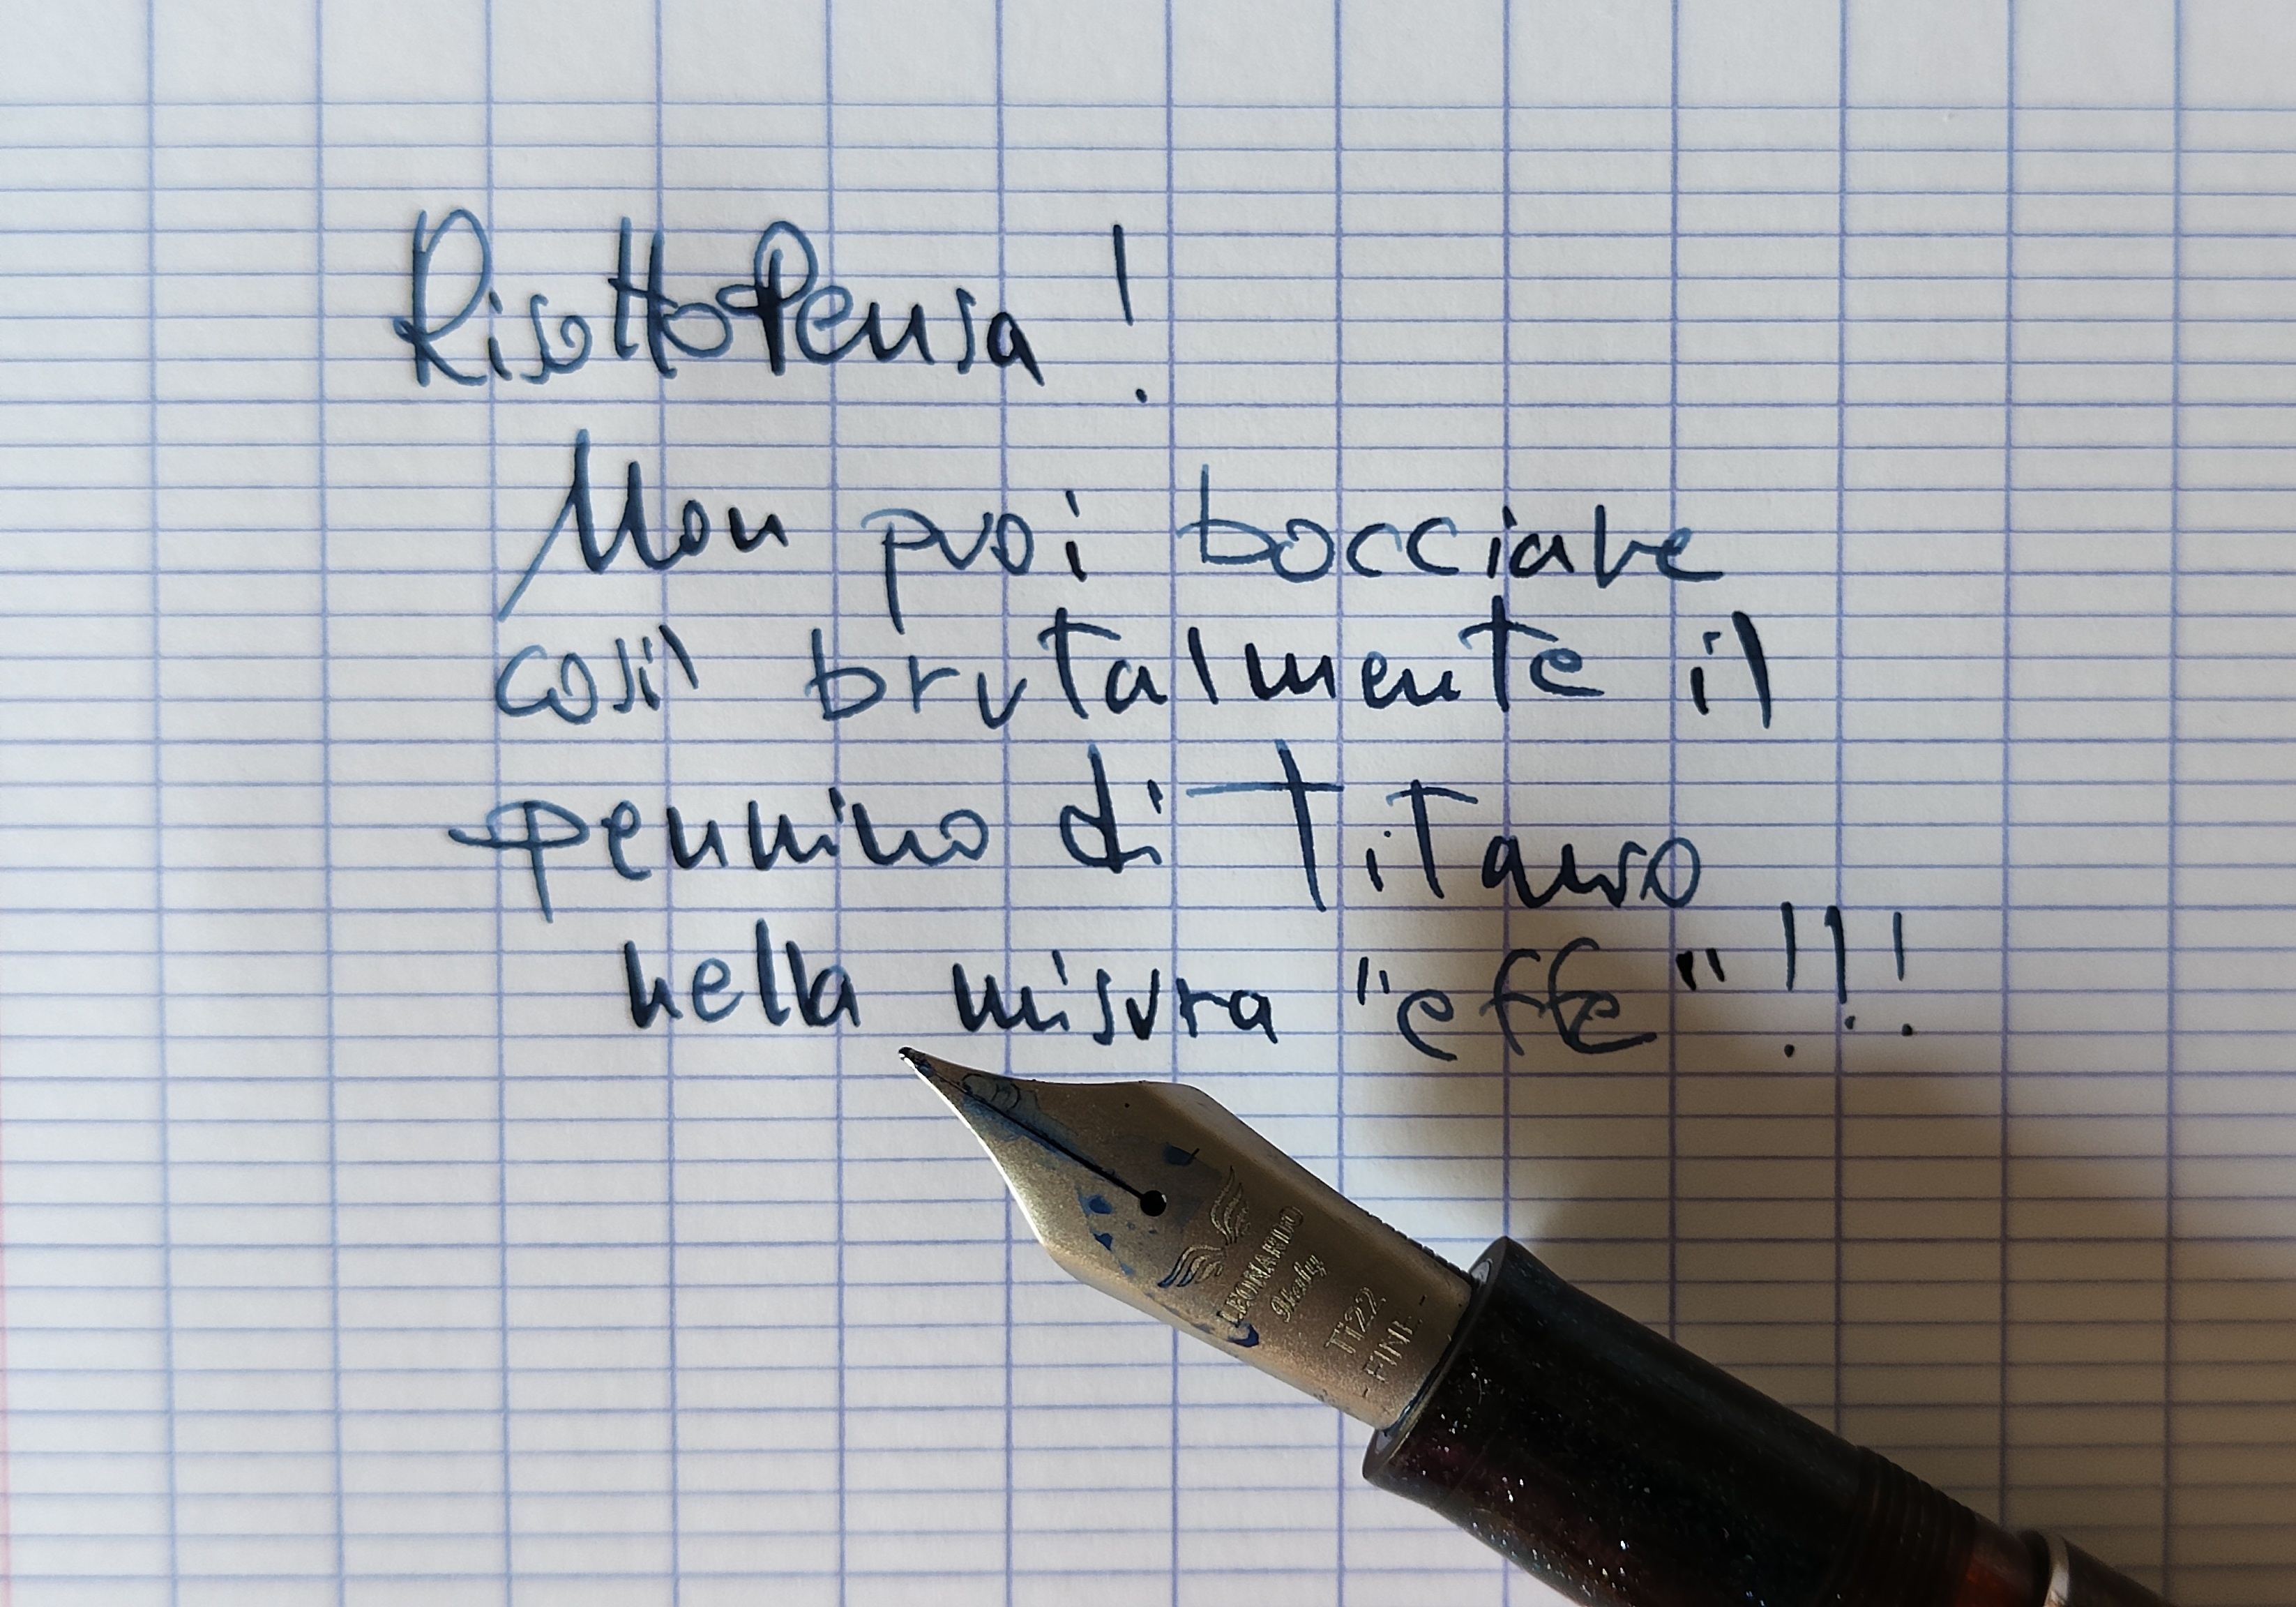 RisottoPensa!
Non puoi bocciare
così brutalmente il
pennino di Titano
nella misura "effe"!!!
LEONARDO
Ti22
-FINE-